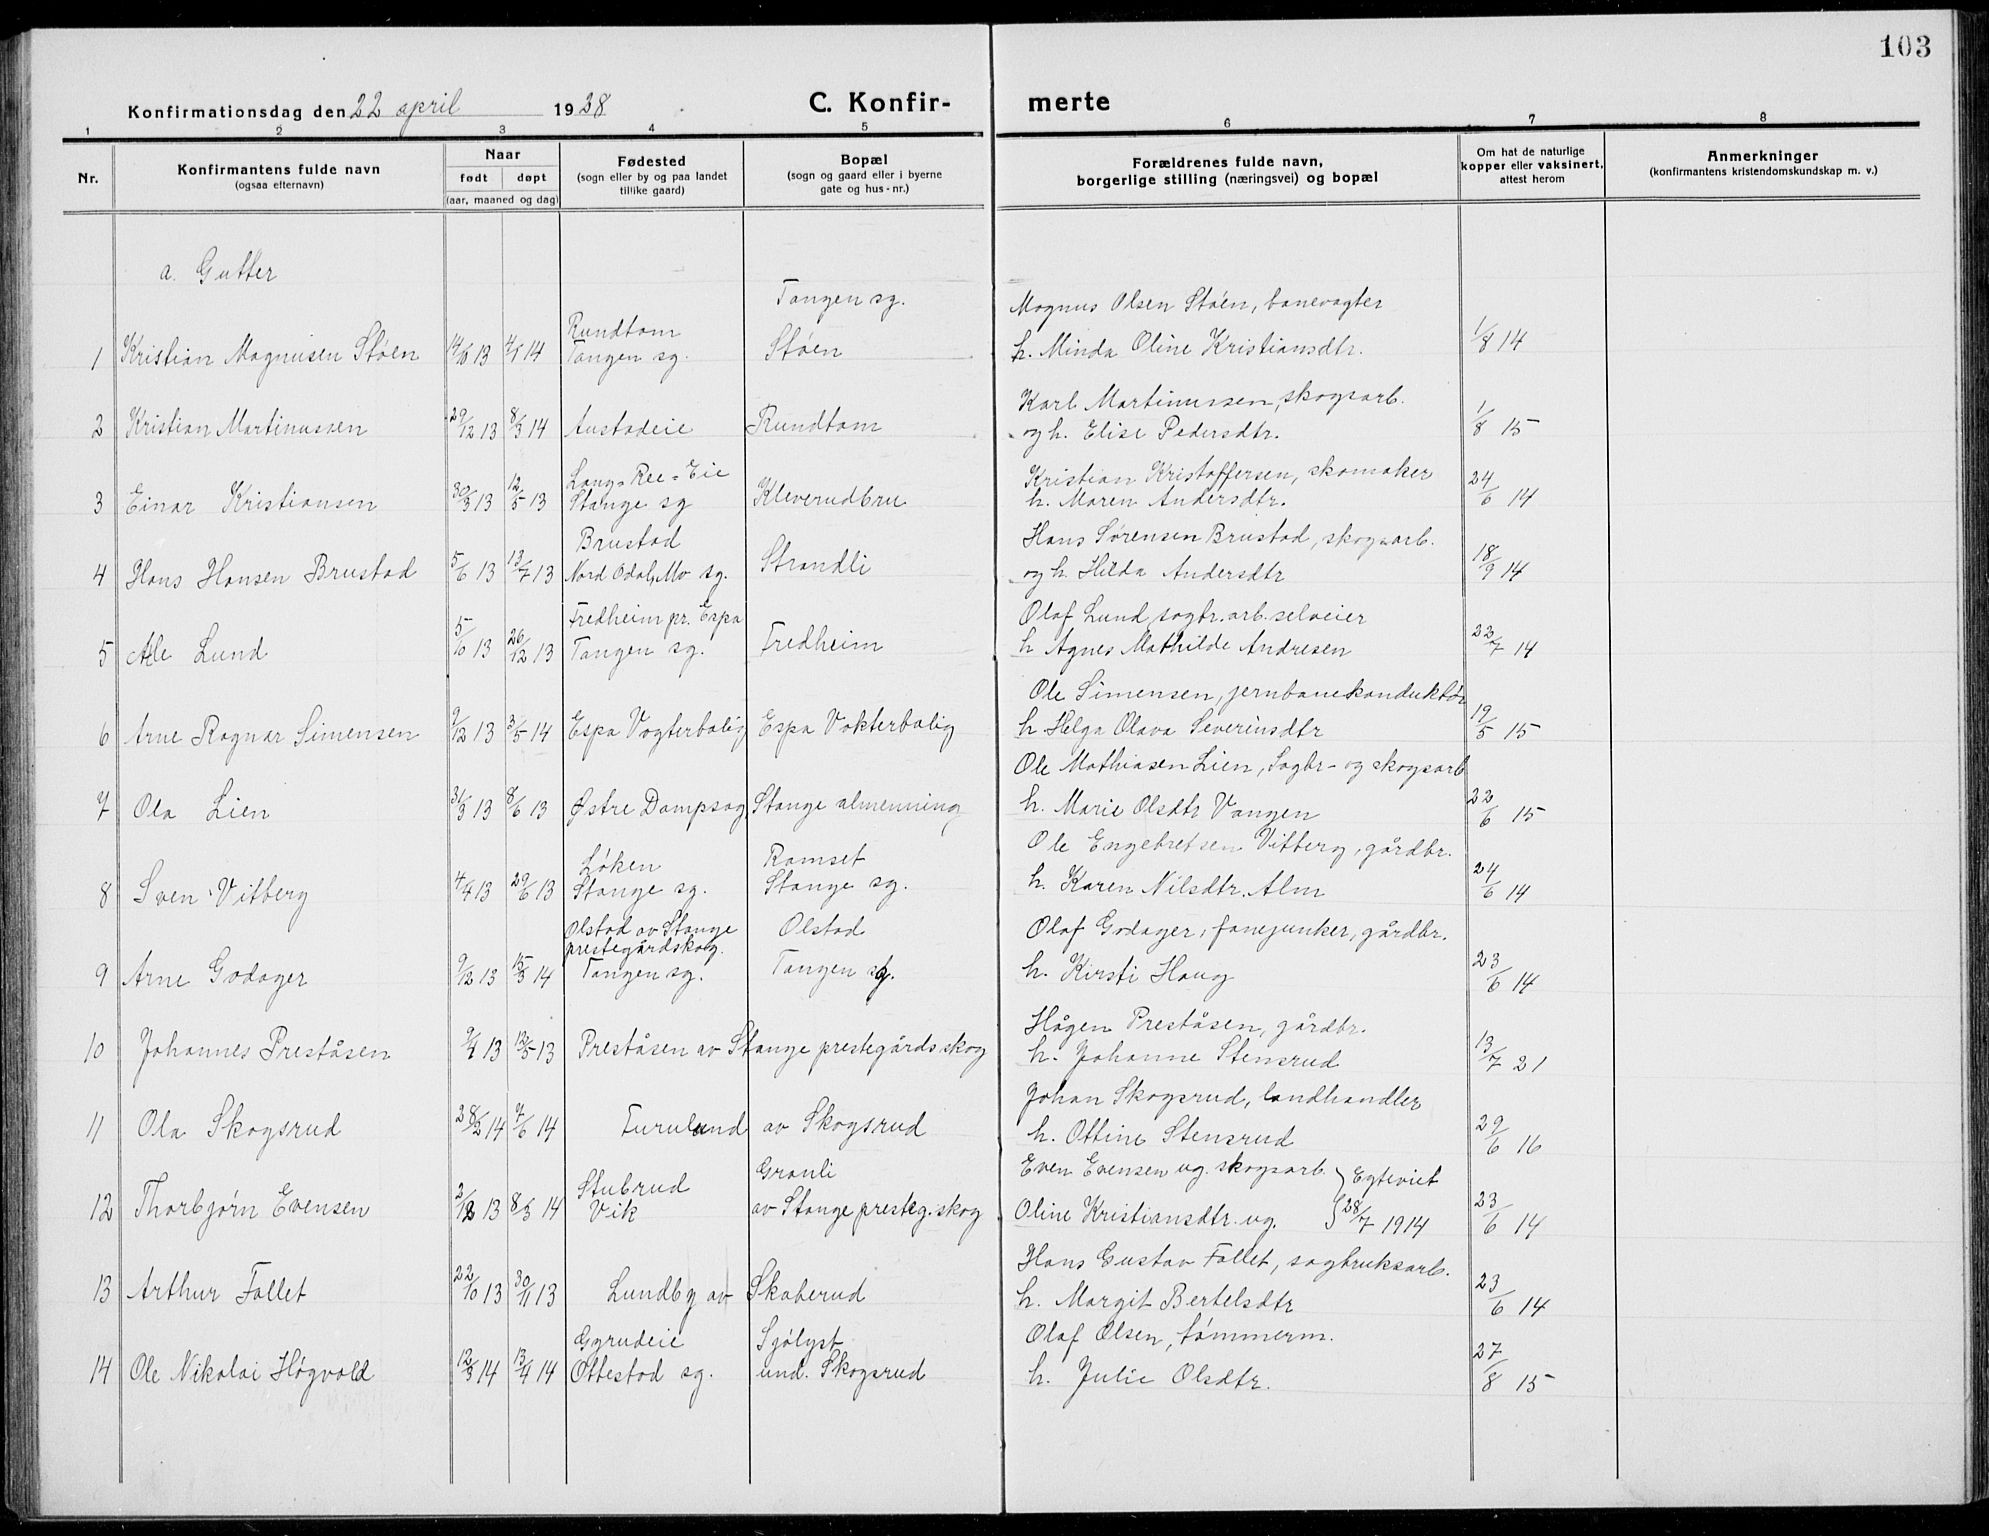 103
Konfirmationsdag den 22 april 1928
C. Konfir-
merte
1 2 3 4 5 6 7 8
Nr.
Konfirmantens fulde navn
(ogsaa efternavn)
Naar
født døpt
(aar, maaned og dag)
Fødested
(sogn eller by og paa landet
tillike gaard)
Bopæl
(sogn og gaard eller i byerne
gate og hus-nr.)
Forældrenes fulde navn,
borgerlige stilling (næringsvei) og bopæl
Om hat de naturlige
kopper eller vaksinert,
attest herom
Anmerkninger
(konfirmantens kristendomskundskap m. v.)
a. Gutter
Tangen sg. Magnus Olsen Støen, banevagter
Rundtom
1 Kristian Magnusen Støen 13 4/1 14 Tangen sg. Støen h. Minda Oline Kristiansdtr. 1/8 14
Karl Martinussen, skogsarb.
2 Kristian Martinussen 29/12 13 8/3 14 Austadeie Rundtom og h. Elise Pedersdtr. 1/8 15
Lang-Ree-Eie Kristian Kristoffersen, skomaker
3 Einar Kristiansen 30/3 13 12/5 13 Stange sg Kleverudbru h. Maren Andersdtr. 24/6 14
Brustad Hans Sørensen Brustad, skogsarb.
4 Hans Hansen Brustad 5/6 13 13/7 13 Nord Odal, Mo sg. Strandli og h. Hilda Andersdtr 18/9 14
Fredheim pr. Espa Olaf Lund, sagbr. arb. selveier
5 Lund 5/10 13 26/12 13 Tangen sg. Fredheim h Agnes Mathilde Andresen 22/7 14
Ole Simensen, jernbanekonduktør
6 Arne Ragnar Simensen 9/12 13 3/5 14 Espa Vogterbolig Espa Vokterbolig h Helga Olava Severinsdtr 19/5 15
Ole Mathiasen Lien, Sagbr- og skogsarb
7 Ola Lien 31/3 13 8/6 13 Østre Dampsag Stange almenning h. Marie Olsdtr Vangen 22/6 15
Løken Romset Ole Engebretsen Vitberg, gårdbr.
8 Sven Vitberg 4/4 13 29/6 13 Stange sg. Stange sg. h. Karen Nilsdtr. Alm 24/6 14
Olstad av Stange Olstad Olaf Godager, fanejunker, gårdbr.
prestegårdskog.
9 Arne Godager 9/12 13 15/3 14 Tangen sg. Tangen sg. h. Kirsti Haug 23/6 14
Hågen Preståsen, gårdbr.
10 Johannes Preståsen 13 12/5 13 Preståsen av Stange prestegårds skog h. Johanne Stensrud 13/7 21
Johan Skogsrud, landhandler
11 Ola Skogsrud 28/2 14 7/6 14 Furulund av Skogsrud h. Ottine Stensrud 29/6 16
Stubrud Granli Even Evensen ug. skogsarb. Egteviet
12 Thorbjørn Evensen 2/12 13 8/3 14 Vik av Stange presteg. skog Oline Kristiansdtr. ug. 28/7 1914 23/6 14
Hans Gustav Follet, sagbruksarb.
13 Arthur Follet 22/10 13 30/11 13 Lundby av Skaberud h. Margit Bertelsdtr 23/6 14
Gyrudeie Sjølyst Olaf Olsen, tømmerm.
14 Ole Nikolai Høgvold 12/3 14 13/4 14 Ottestad sg. und. Skogsrud h. Julie Olsdtr. 27/8 15